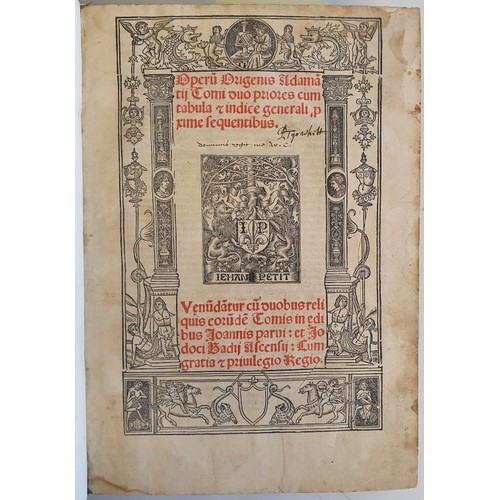 Operū Origenis Adamā
tij Tomi duo priores cum
tabula ⁊ indice generali, ꝓ
xime sequentibus.
I P
IEHAN PETIT
Venūdātur cū duobus reli
quis eorūdē Tomis in edi
bus Joannis parui: et Jo
doci Badij Ascensij: Cum
gratia ⁊ priuilegio Regio.